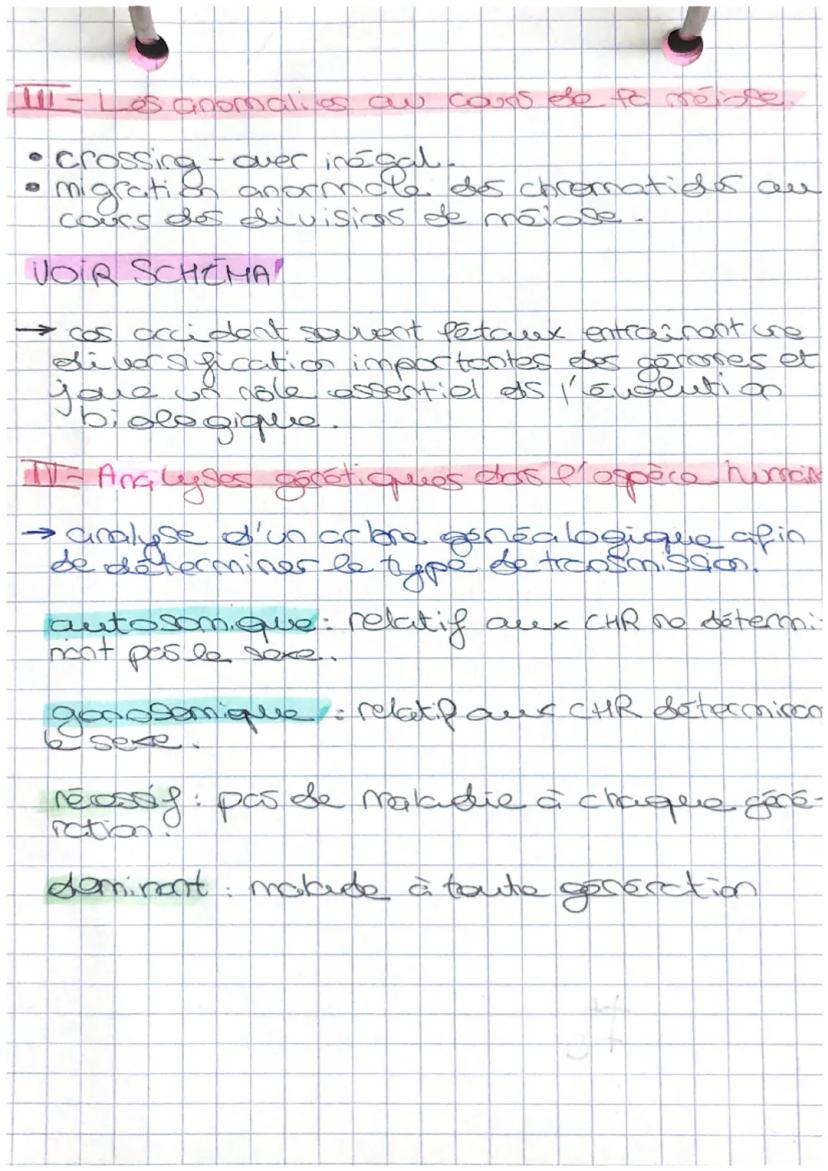 III - Les anomalies au cours de la méiose.
• crossing-over inégal.
• migration anormale des chromatides au
cours des divisions de méiose.
VOIR SCHÉMA!
→ ces accident souvent fétaux entrainent une
diversification importantes des génomes et
joue un rôle essentiel ds l'évolution
biologique.
IV - Analyses génétiques dans l'espèce humain
→ analyse d'un arbre généalogique afin
de déterminer le type de transmission.
autosomique : relatif aux CHR ne détermi-
nant pas le sexe.
gonosomique : relatif aux CHR déterminan
le sexe.
récessif : pas de maladie à chaque géné-
ration.
dominant : malade à toute génération